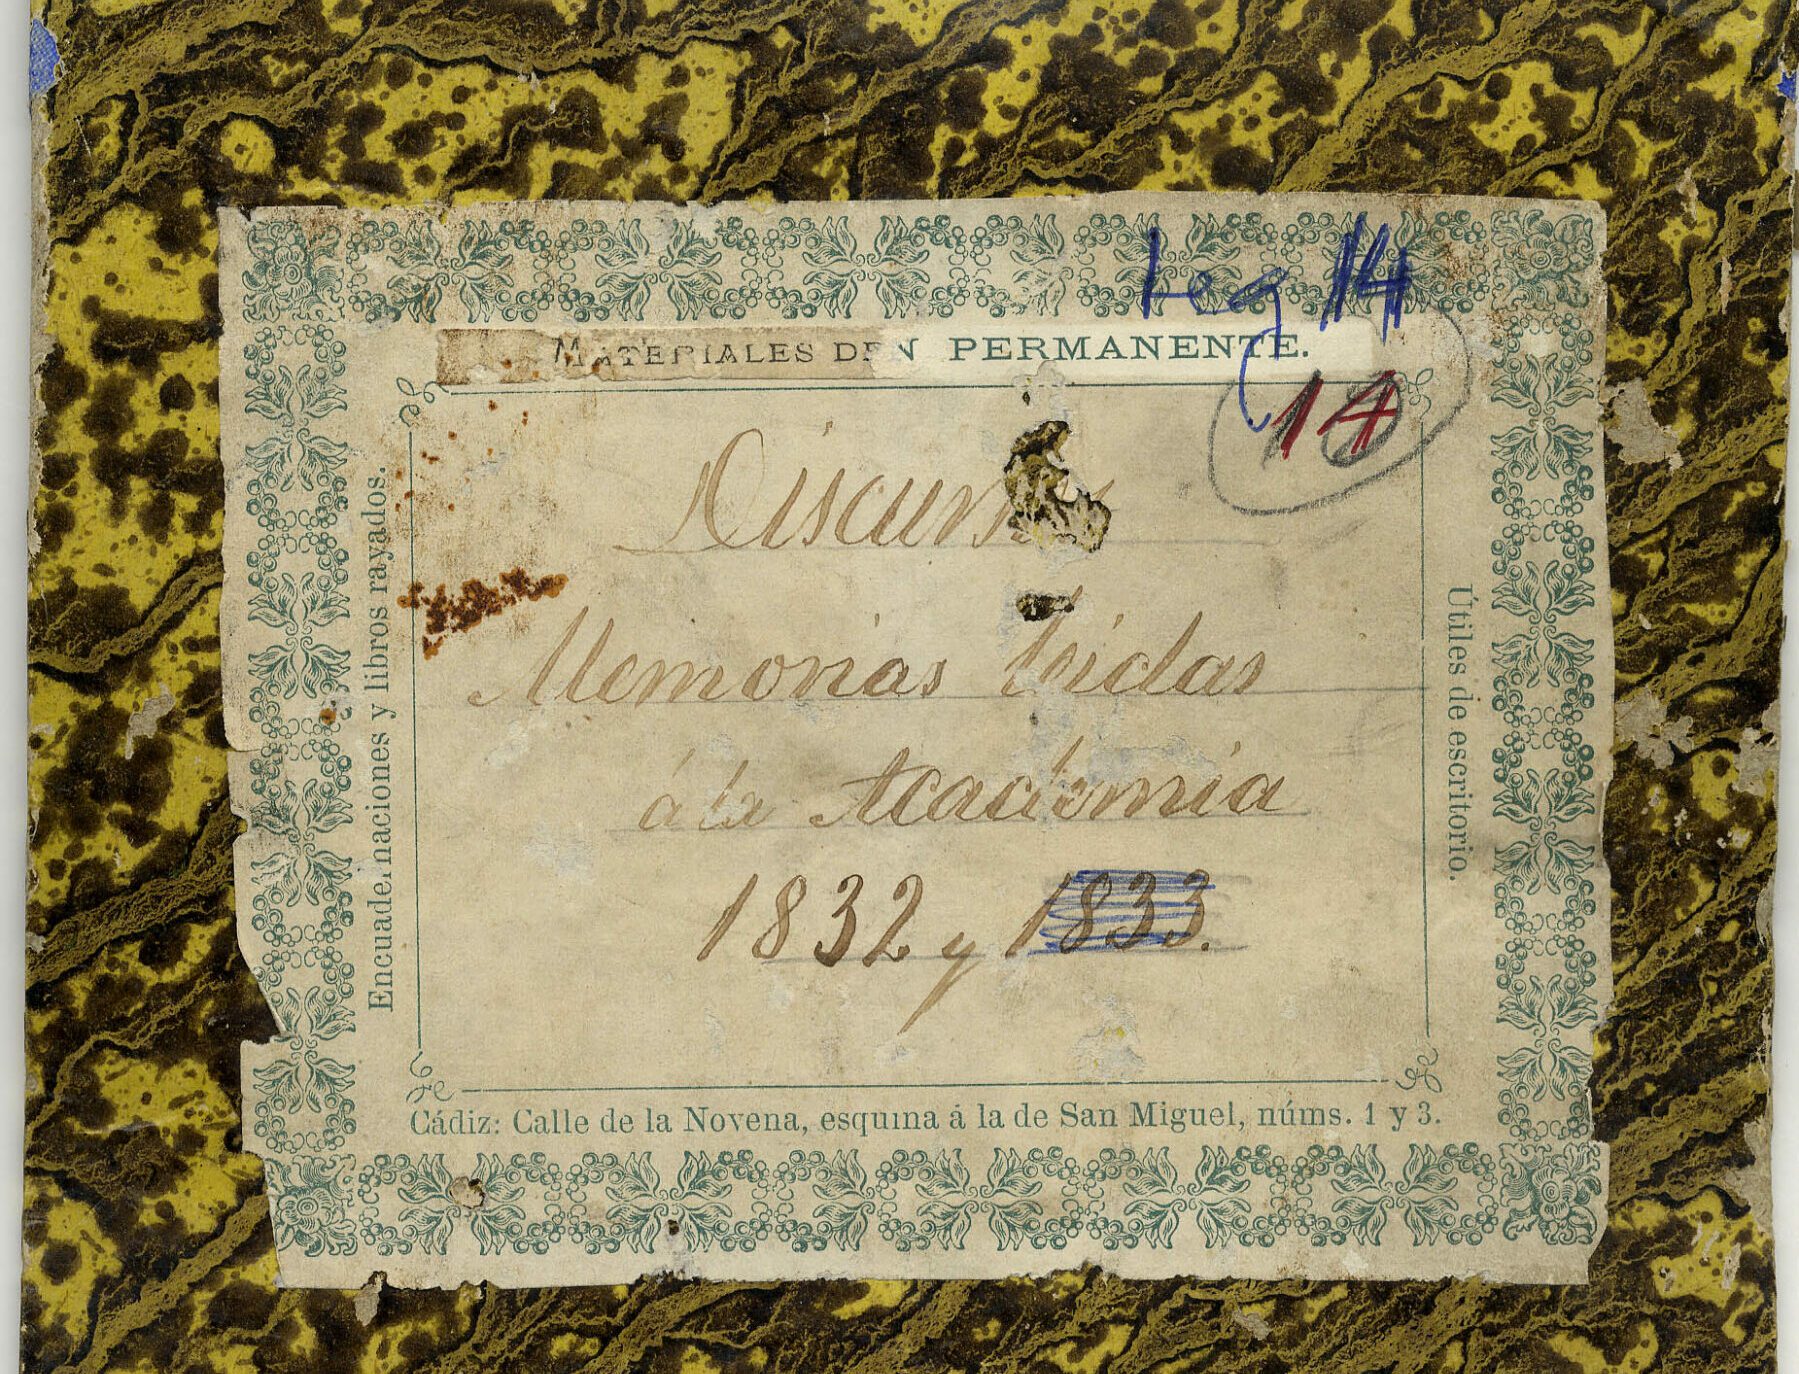 Leg 14
MATERIALES DE N PERMANENTE.
14
Memorias leidas
á la Academia
1832 y 1833.
Encuadernaciones y libros rayados.
Útiles de escritorio.
Cádiz: Calle de la Novena, esquina á la de San Miguel, núms. 1 y 3.